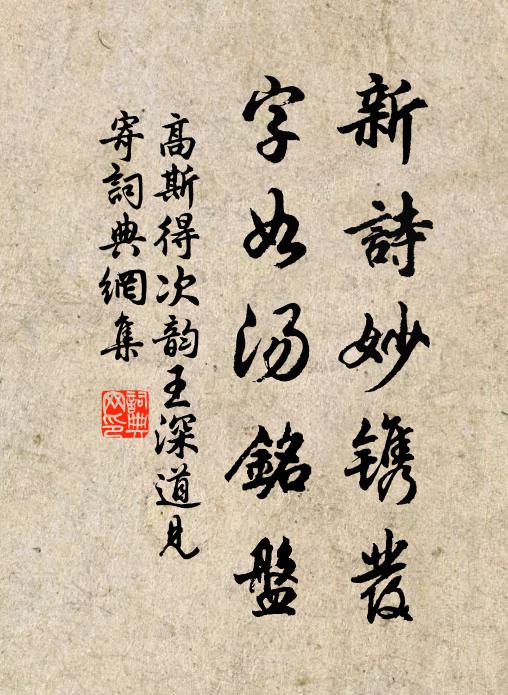 新詩妙鐫發
字如湯銘盤
高斯得次韵王深道見
寄詞典網集
詞典網印